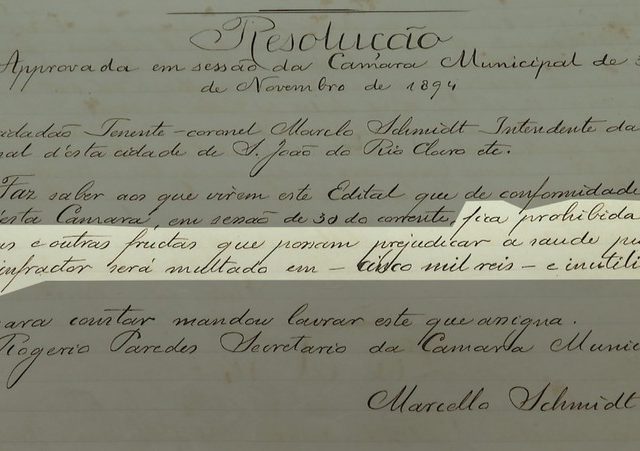 Resolucção
Approvada em sessão da Camara Municipal de 3
de Novembro de 1894
idadão Tenente-coronel Marcelo Schmidt Intendente da
nal d'esta cidade de S. João do Rio Claro etc.
Faz saber aos que virem este Edital que de conformidade
esta Camara, em sessão de 30 do corrente, fica prohibida
us e outras fructas que possam prejudicar a saude pu
infractor será multado em - cinco mil reis - e inutili
para constar mandou lavrar este que assigna.
Rogerio Paredes Secretario da Camara Munic
Marcello Schmidt